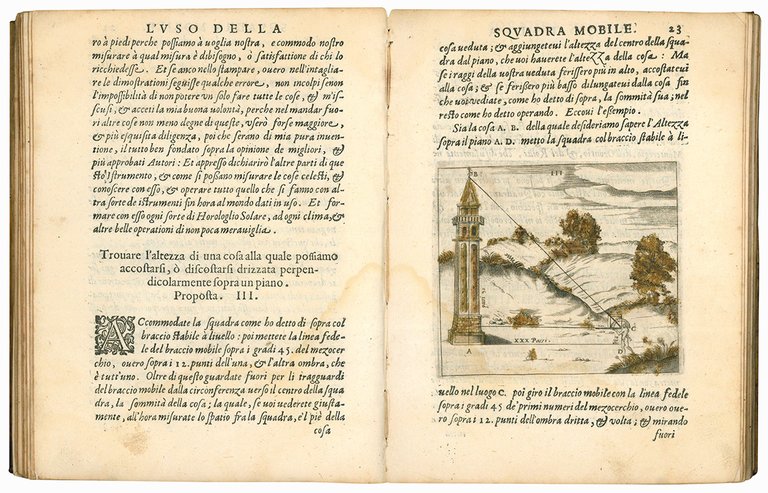 L'VSO DELLA
ro à piedi perche possiamo à voglia nostra, e commodo nostro
misurare à qual misura è dibisogno, ò satisfattione di chi lo
ricchiedesse. Et se anco nello stampare, ouero nell'intaglia-
re le dimostrationi seguisse qualche errore, non incolpi se non
l'impossibilità di non potere vn solo fare tutte le cose, & m'i-
scusi, & accetti la mia buona volontà, perche nel mandar fuo-
ri altre cose non meno degne di queste, vserò forse maggiore,
& più esquisita diligenza, poi che serano di mia pura inuen-
tione, il tutto ben fondato sopra la opinione de migliori, &
più approbati Autori: Et appresso dichiarirò l'altre parti di que
sto Istrumento, & come si possano misurare le cose celesti, &
conoscere con esso, & operare tutto quello che si fanno con al-
tra sorte de istrumenti fin hora al mondo dati in uso. Et for-
mare con esso ogni sorte de Horologlio Solare, ad ogni clima, &
altre belle operationi di non poca merauiglia.
Trouare l'altezza di una cosa alla quale possiamo
accostarsi, ò discostarsi drizzata perpen-
dicolarmente sopra un piano.
Proposta. III.
ACcommodate la squadra come ho detto di sopra col
braccio stabile à liuello: poi mettete la linea fede-
le del braccio mobile sopra i gradi 45. del mezocer-
chio, ouero sopra i 12. punti dell'una, & l'altra ombra, che
è tutt'uno. Oltre di questo guardate fuori per li traguardi
del braccio mobile dalla circonferenza verso il centro della squa
dra, la sommità della cosa; la quale, se voi uederete giusta-
mente, all'hora misurate lo spatio fra la squadra, e'l piè della
cosa
SQVADRA MOBILE. 23
cosa veduta; & aggiungeteui l'altezza del centro della squa-
dra dal piano, che voi hauerete l'altezza della cosa: Ma
se i raggi della vostra veduta ferissero più in alto, accostateui
alla cosa; & se ferissero più basso dilungateui dalla cosa fin
che voi vediate, come ho detto di sopra, la sommità sua; nel
resto come ho detto operando. Eccoui l'essempio.
Sia la cosa A. B. della quale desideriamo sapere l'Altezza
sopra il piano A. D. metto la squadra col braccio stabile à li-
B
III
C
XXX Passi.
A
D
uello nel luogo C. poi giro il braccio mobile con la linea fedele
sopra i gradi 45 de' primi numeri del mezocerchio, ouero oue-
ro sopra i 12. punti dell'ombra dritta, & volta; & mirando
fuori